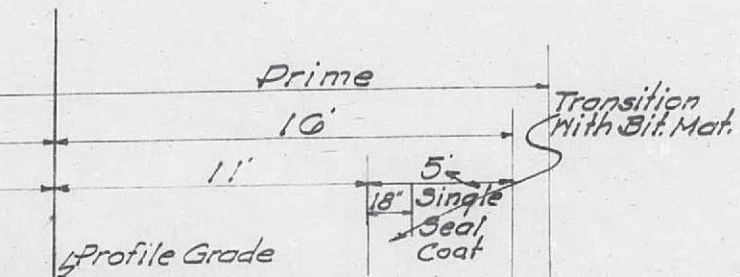 Prime
Transition
With Bit. Mat.
16'
11'
5'
18"
Single
Seal
Coat
Profile Grade